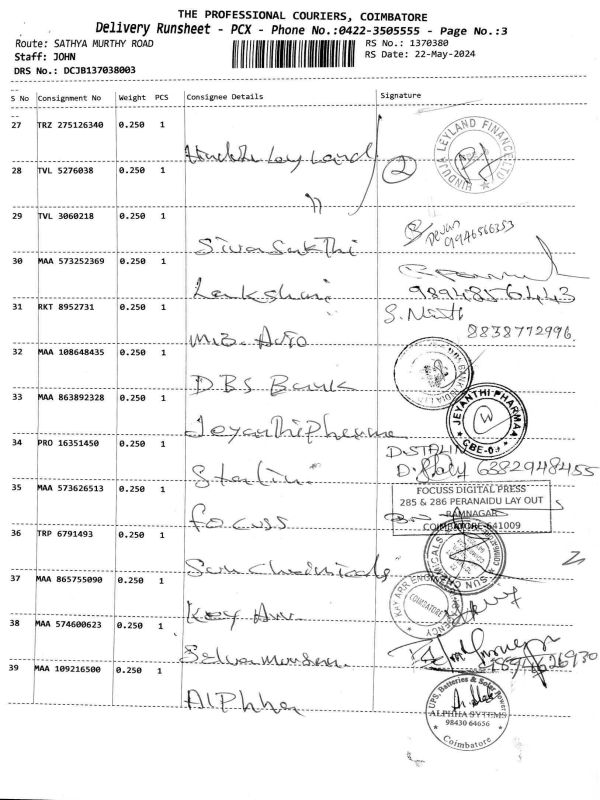 THE PROFESSIONAL COURIERS, COIMBATORE
Delivery Runsheet - PCX - Phone No.:0422-3505555 - Page No.:3
Route: SATHYA MURTHY ROAD
RS No.: 1370380
Staff: JOHN
RS Date: 22-May-2024
DRS No.: DCJB137038003
S No Consignment No Weight PCS Consignee Details Signature
27 TRZ 275126340 0.250 1
HINDUJA LEYLAND FINANCE LTD
28 TVL 5276038 0.250 1
2
29 TVL 3060218 0.250 1
Sivasakthi
Devan
9946566353
30 MAA 573252369 0.250 1
Lakshmi
9894856443
31 RKT 8952731 0.250 1
M.B. Auto
8838772996
32 MAA 108648435 0.250 1
DBS Bank
33 MAA 863892328 0.250 1
Jeyanthi pharma
JEYANTHI PHARMAA
CBE-
34 PRO 16351450 0.250 1
Stalin
D.STALIN
6382948455
35 MAA 573626513 0.250 1
focuss
FOCUSS DIGITAL PRESS
285 & 286 PERANAIDU LAY OUT
RAMNAGAR
COIMBATORE-641009
36 TRP 6791493 0.250 1
Sun Chemicals
SUN CHEMICALS
37 MAA 865755090 0.250 1
Key Arr
KAY ARR ENGINEERING AGENCY
COIMBATORE
38 MAA 574600623 0.250 1
Selvamurugan
39 MAA 109216500 0.250 1
Alphha
UPS, Batteries & Solar Power
ALPHHA SYTEMS
98430 64656
Coimbatore